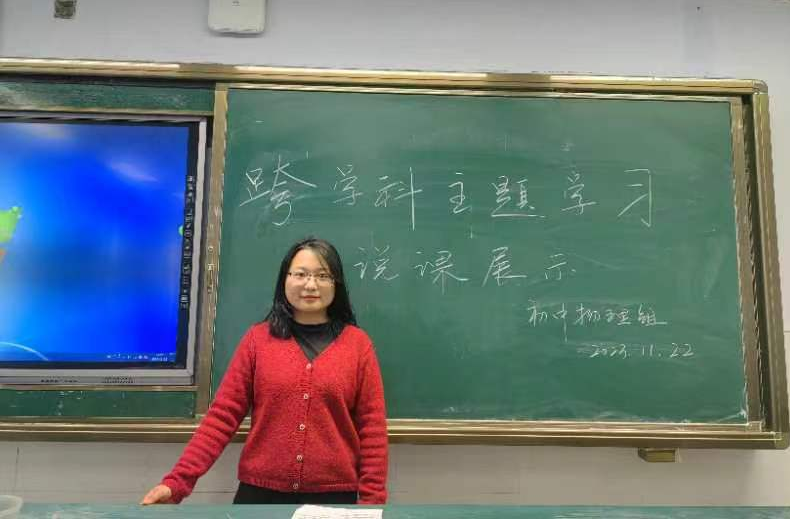 跨学科主题学习
说课展示
初中物理组
2023.11.22